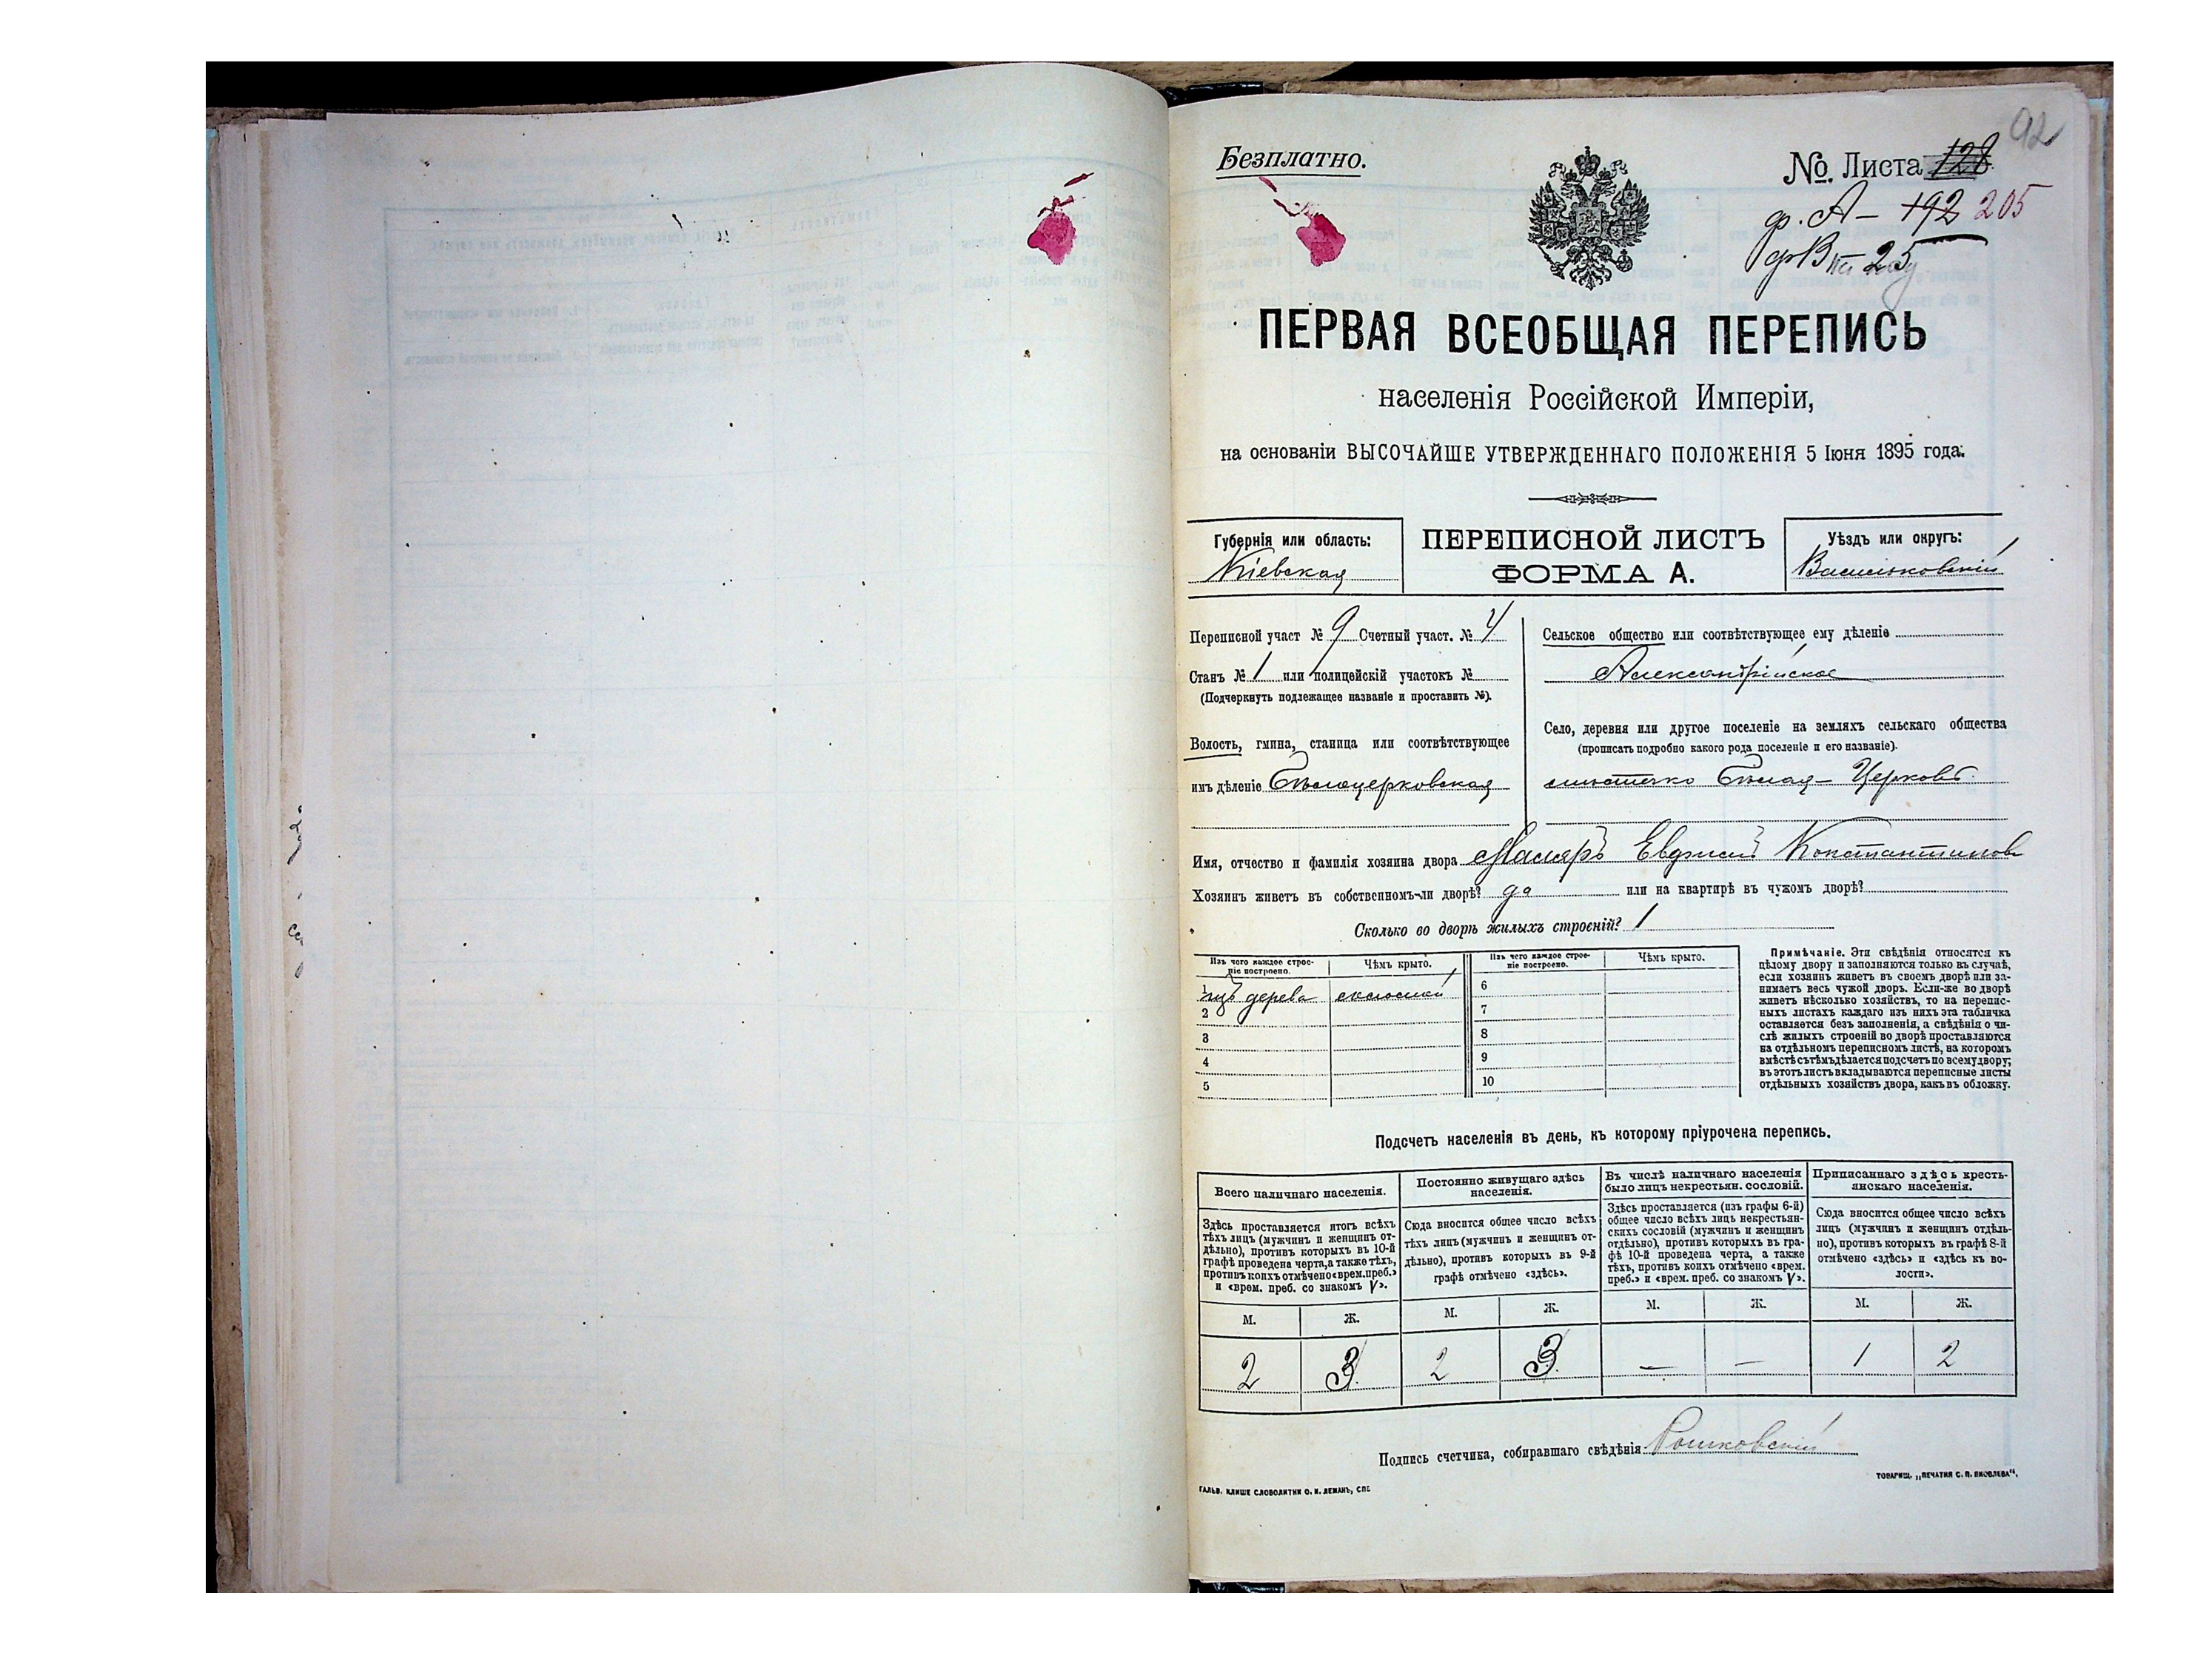 92
Безплатно.
№ Листа 128
ф. А — 192 205
ф В — 25
ПЕРВАЯ ВСЕОБЩАЯ ПЕРЕПИСЬ
населенія Россійской Имперіи,
на основаніи ВЫСОЧАЙШЕ УТВЕРЖДЕННАГО ПОЛОЖЕНІЯ 5 Іюня 1895 года.
Губернія или область:
Кіевская
ПЕРЕПИСНОЙ ЛИСТЪ
ФОРМА А.
Уѣздъ или округъ:
Васильковскій
Переписной участ № 9 Счетный участ. № 4
Станъ № 1 или полицейскій участокъ №
(Подчеркнуть подлежащее названіе и проставить №).
Волость, гмина, станица или соотвѣтствующее
имъ дѣленіе Бѣлоцерковская
Сельское общество или соотвѣтствующее ему дѣленіе
Александрійское
Село, деревня или другое поселеніе на земляхъ сельскаго общества
(прописать подробно какого рода поселеніе и его названіе).
мѣстечко Бѣлая-Церковь
Имя, отчество и фамилія хозяина двора Маляръ Евдокимъ Константиновъ
Хозяинъ живетъ въ собственномъ-ли дворѣ? да или на квартирѣ въ чужомъ дворѣ?
Сколько во дворѣ жилыхъ строеній? 1
Изъ чего каждое строе-
ніе построено.
Чѣмъ крыто.
Изъ чего каждое строе-
ніе построено.
Чѣмъ крыто.
1 изъ дерева соломой 6
2 7
3 8
4 9
5 10
Примѣчаніе. Эти свѣдѣнія относятся къ
цѣлому двору и заполняются только въ случаѣ,
если хозяинъ живетъ въ своемъ дворѣ или за-
нимаетъ весь чужой дворъ. Если-же во дворѣ
живетъ нѣсколько хозяйствъ, то на перепис-
ныхъ листахъ каждаго изъ нихъ эта табличка
оставляется безъ заполненія, а свѣдѣнія о чи-
слѣ жилыхъ строеній во дворѣ проставляются
на отдѣльномъ переписномъ листѣ, на которомъ
вмѣстѣ съ тѣмъ дѣлается подсчетъ по всему двору;
въ этотъ листъ вкладываются переписные листы
отдѣльныхъ хозяйствъ двора, какъ въ обложку.
Подсчетъ населенія въ день, къ которому пріурочена перепись.
Всего наличнаго населенія.
Здѣсь проставляется итогъ всѣхъ
тѣхъ лицъ (мужчинъ и женщинъ от-
дѣльно), противъ которыхъ въ 10-й
графѣ проведена черта, а также тѣхъ,
противъ коихъ отмѣчено «врем. преб.»
и «врем. преб. со знакомъ V».
Постоянно живущаго здѣсь
населенія.
Сюда вносится общее число всѣхъ
тѣхъ лицъ (мужчинъ и женщинъ от-
дѣльно), противъ которыхъ въ 9-й
графѣ отмѣчено «здѣсь».
Въ числѣ наличнаго населенія
было лицъ некрестьян. сословій.
Здѣсь проставляется (изъ графы 6-й)
общее число всѣхъ лицъ некрестьян-
скихъ сословій (мужчинъ и женщинъ
отдѣльно), противъ которыхъ въ гра-
фѣ 10-й проведена черта, а также
тѣхъ, противъ коихъ отмѣчено «врем.
преб.» и «врем. преб. со знакомъ V».
Приписаннаго здѣсь кресть-
янскаго населенія.
Сюда вносится общее число всѣхъ
лицъ (мужчинъ и женщинъ отдѣль-
но), противъ которыхъ въ графѣ 8-й
отмѣчено «здѣсь» и «здѣсь къ во-
лости».
М. Ж. М. Ж. М. Ж. М. Ж.
2 3 2 3 — — 1 2
Подпись счетчика, собиравшаго свѣдѣнія
ГАЛЬВ. КЛИШЕ СЛОВОЛИТНИ О. И. ЛЕМАНЪ, СПБ
ТОВАРИЩ. „ПЕЧАТНЯ С. П. ЯКОВЛЕВА“,